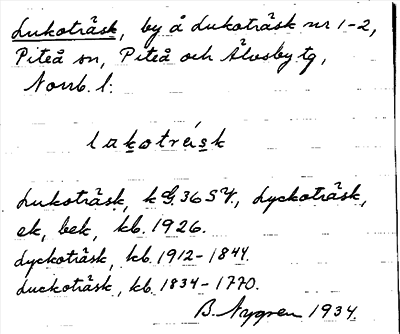 Lukoträsk, by å Lukoträsk nr 1-2,
Piteå sn, Piteå och Älvsby tg,
Norrb. l.
lakotrásk
Lukoträsk, k G. 36 SV., Lyckoträsk,
ek, bek, kb. 1926.
Lyckoträsk, kb. 1912-1844.
Luckoträsk, kb. 1834-1770.
B. Nygren 1934.